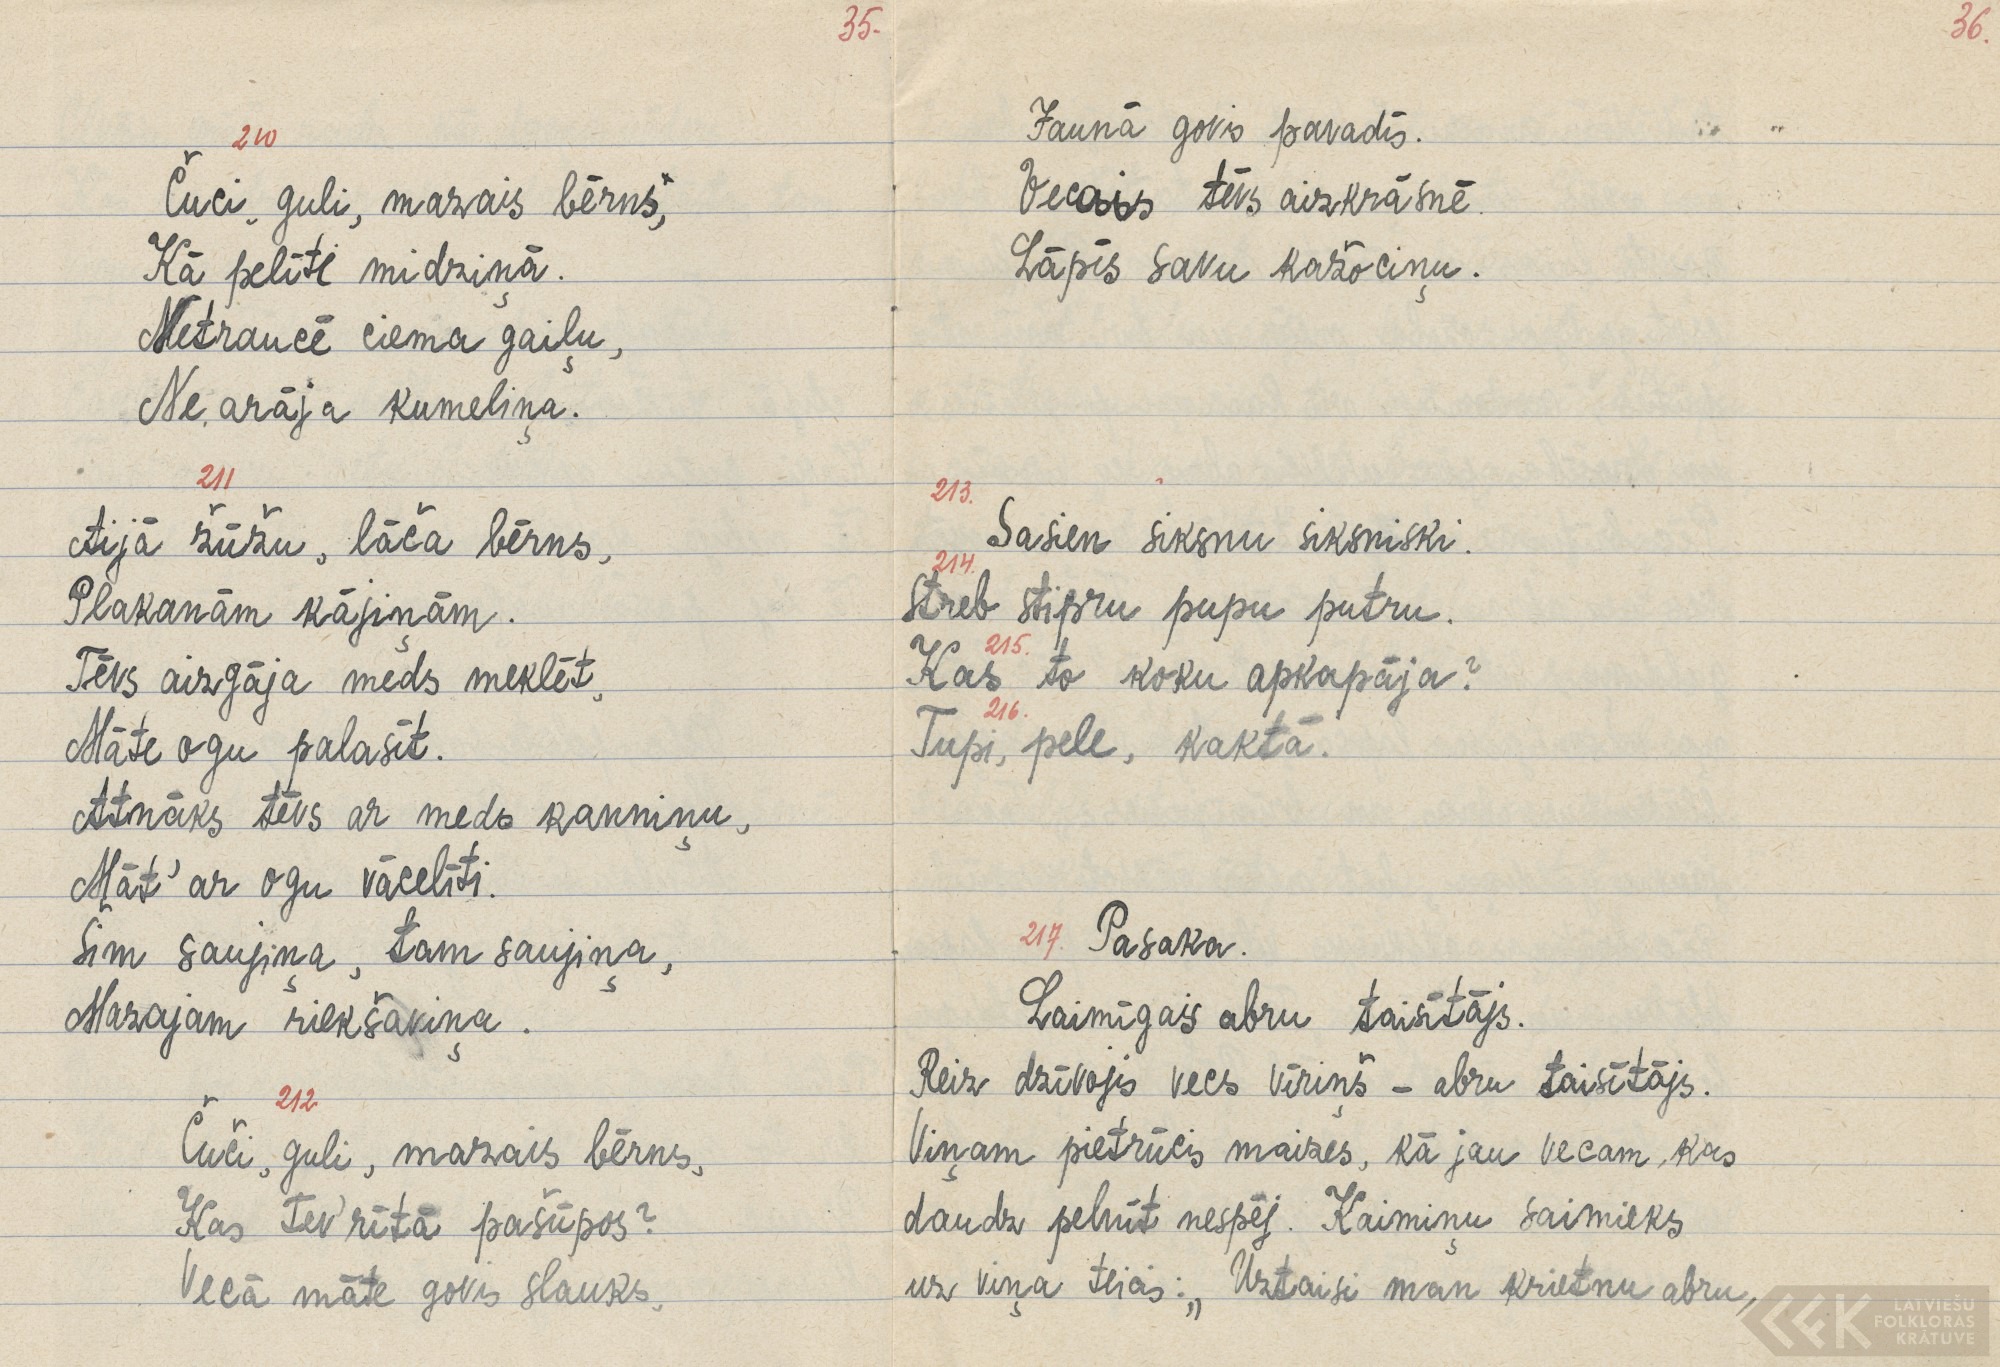 35.
210
Čuci, guli, mazais bērns,
Kā pelīte midziņā.
Netraucē ciema gaiļu,
Ne arāja kumeliņa.
211
Aijā žūžu, lāča bērns,
Plakanām kājiņām.
Tēvs aizgāja meds meklēt,
Māte ogu palasīt.
Atnāks tēvs ar meds kanniņu,
Māt' ar ogu vācelīti.
Šim saujiņa, tam saujiņa,
Mazajam riekšaviņa.
212
Čuči, guli, mazais bērns,
Kas Tev rītā pašūpos?
Vecā māte govis slauks,
36.
Jaunā govis pavadīs.
Vecais tēvs aizkrāsnē
Lāpīs savu kažociņu.
213.
Sasien siksnu siksniski.
214.
Streb stipru pupu putru.
215.
Kas to koku apkapāja?
216.
Tupi, pele, kaktā.
217. Pasaka.
Laimīgais abru taisītājs.
Reiz dzīvojis vecs vīriņš – abru taisītājs.
Viņam pietrūcis maizes, kā jau vecam, kas
daudz pelnīt nespēj. Kaimiņu saimieks
uz viņa teicis: „Uztaisi man krietnu abru,
LATVIEŠU
FOLKLORAS
KRĀTUVE